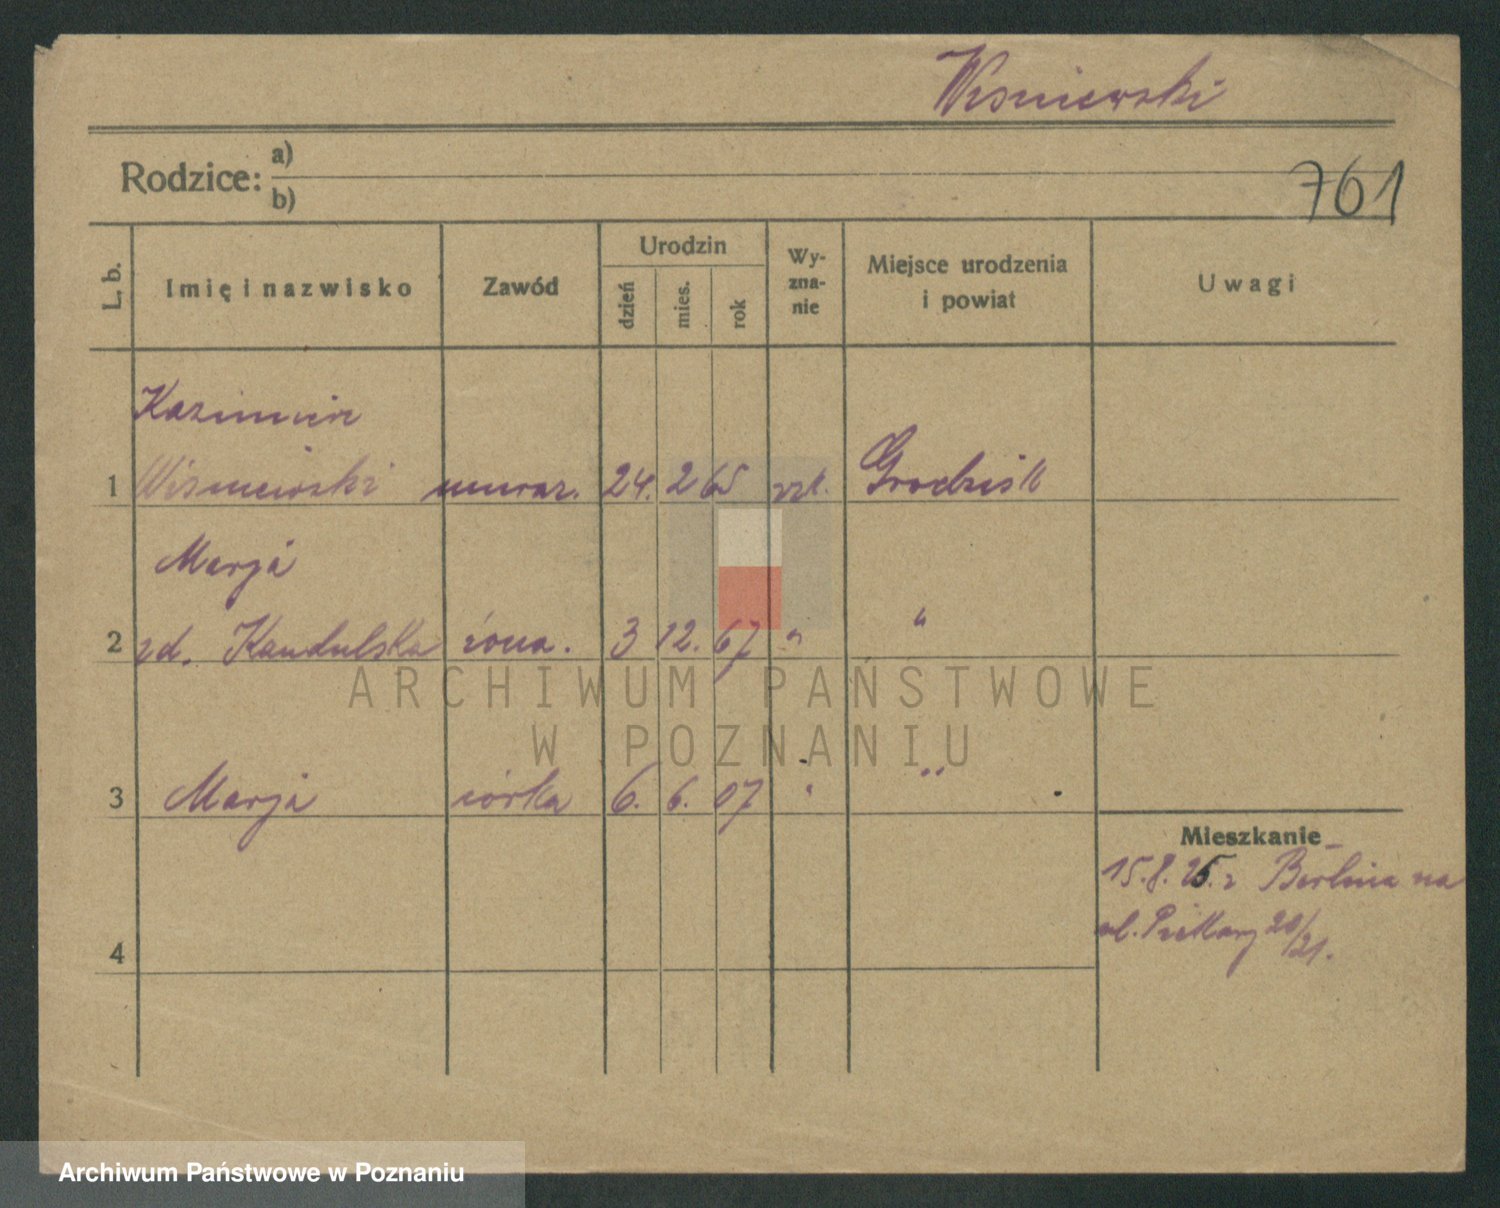 Wiśniewski
Rodzice: a)
b)
761
L. b.
Imię i nazwisko
Zawód
Urodzin
dzień
mies.
rok
Wy-
zna-
nie
Miejsce urodzenia
i powiat
Uwagi
Kazimierz
1 Wiśniewski murarz. 24. 2 65 rzk. Grodzisk
Marja
2 zd. Kandulska żona. 3 12. 67 " "
ARCHIWUM PAŃSTWOWE
W POZNANIU
3 Marja córka 6. 6. 07 " "
Mieszkanie
15.8.25. z Berlina na
ul. 20/21.
4
Archiwum Państwowe w Poznaniu